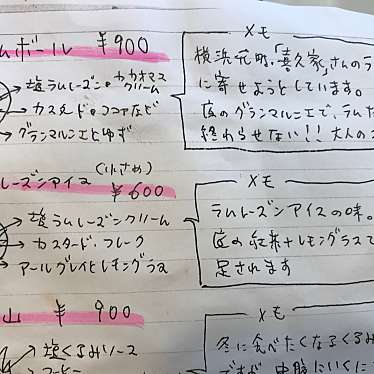 ムボール ¥900
塩ラムレーズン・カカオマス
クリーム
カスタード・ココアなど
グランマルニエとゆず
メモ
横浜元町「喜久家」さんのラ
に寄せようとしています。
底のグランマルニエで、ラムだ
終わらせない!! 大人の
レーズンアイス (小さめ) ¥600
塩ラムレーズンクリーム
カスタード・フレーク
アールグレイとレモングラス
メモ
ラムレーズンアイスの味。
底の紅茶+レモングラスで
足されます
山 ¥ 900
塩くるみソース
コーヒー
メモ
冬に食べたくなるくるみ